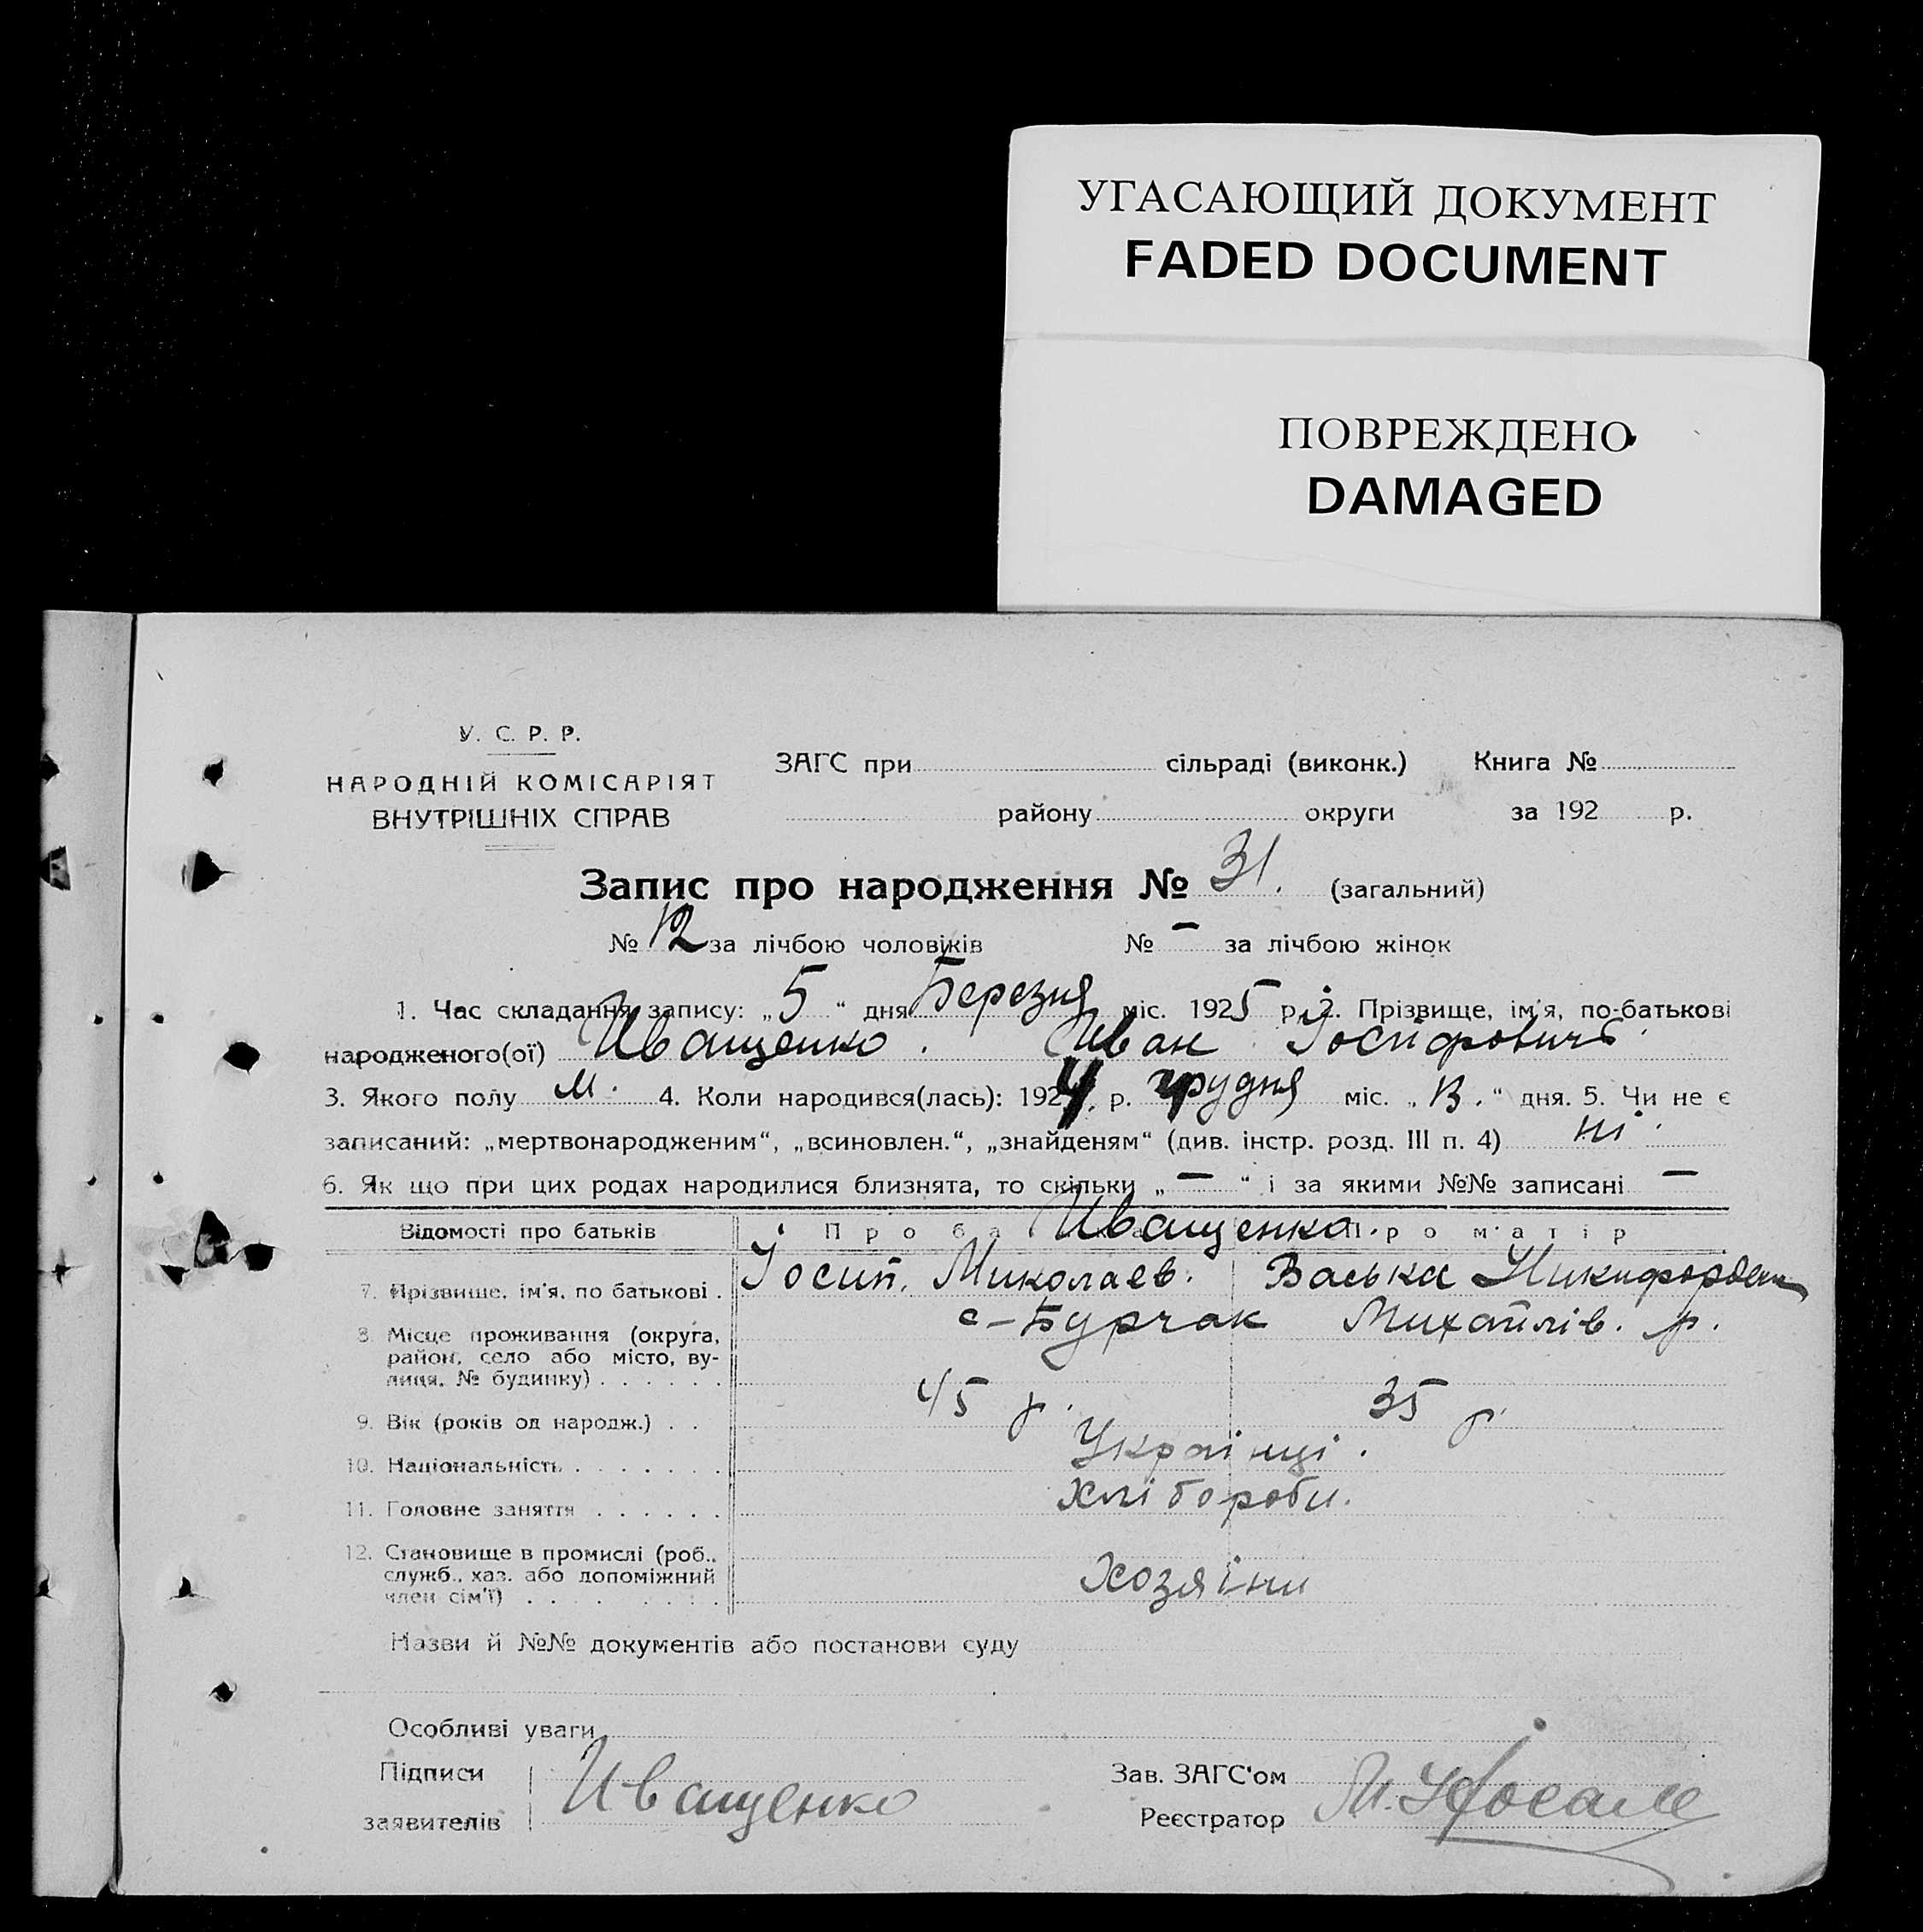 УГАСАЮЩИЙ ДОКУМЕНТ
FADED DOCUMENT
ПОВРЕЖДЕНО
DAMAGED
У. С. Р. Р.
НАРОДНІЙ КОМІСАРІЯТ
ВНУТРІШНІХ СПРАВ
ЗАГС при сільраді (виконк.) Книга №
району округи за 192 р.
Запис про народження № 31. (загальний)
№ 12 за лічбою чоловіків № — за лічбою жінок
1. Час складання запису: „5“ дня Березня міс. 1925 р. 2. Прізвище, ім'я, по-батькові
народженого(ої) Иващенко. Иван Іосифовичъ
3. Якого полу м. 4. Коли народився(лась): 1924, р. грудня міс. „13.“ дня. 5. Чи не є
записаний: „мертвонародженим“, „всиновлен.“, „знайденям“ (див. інстр. розд. III п. 4) ні.
6. Як що при цих родах народилися близнята, то скільки „—“ і за якими №№ записані —
Відомості про батьків Про батька Иващенко. Про матір
7. Прізвище, ім'я, по батькові . Іосип. Миколаев. Васька
8. Місце проживання (округа, с-Бурчак Михайлів. р.
район, село або місто, ву-
лиця, № будинку) . . . . . .
9. Вік (років од народж.) . . 45 р. 35 р.
10. Національність . . . . . . . Українці.
11. Головне заняття . . . . . . Хлібороби.
12. Становище в промислі (роб.,
служб., хаз. або допоміжний Хозяіни
член сім'ї) . . . . . . . .
Назви й №№ документів або постанови суду
Особливі уваги
Підписи Иващенко Зав. ЗАГС'ом
заявителів Реєстратор